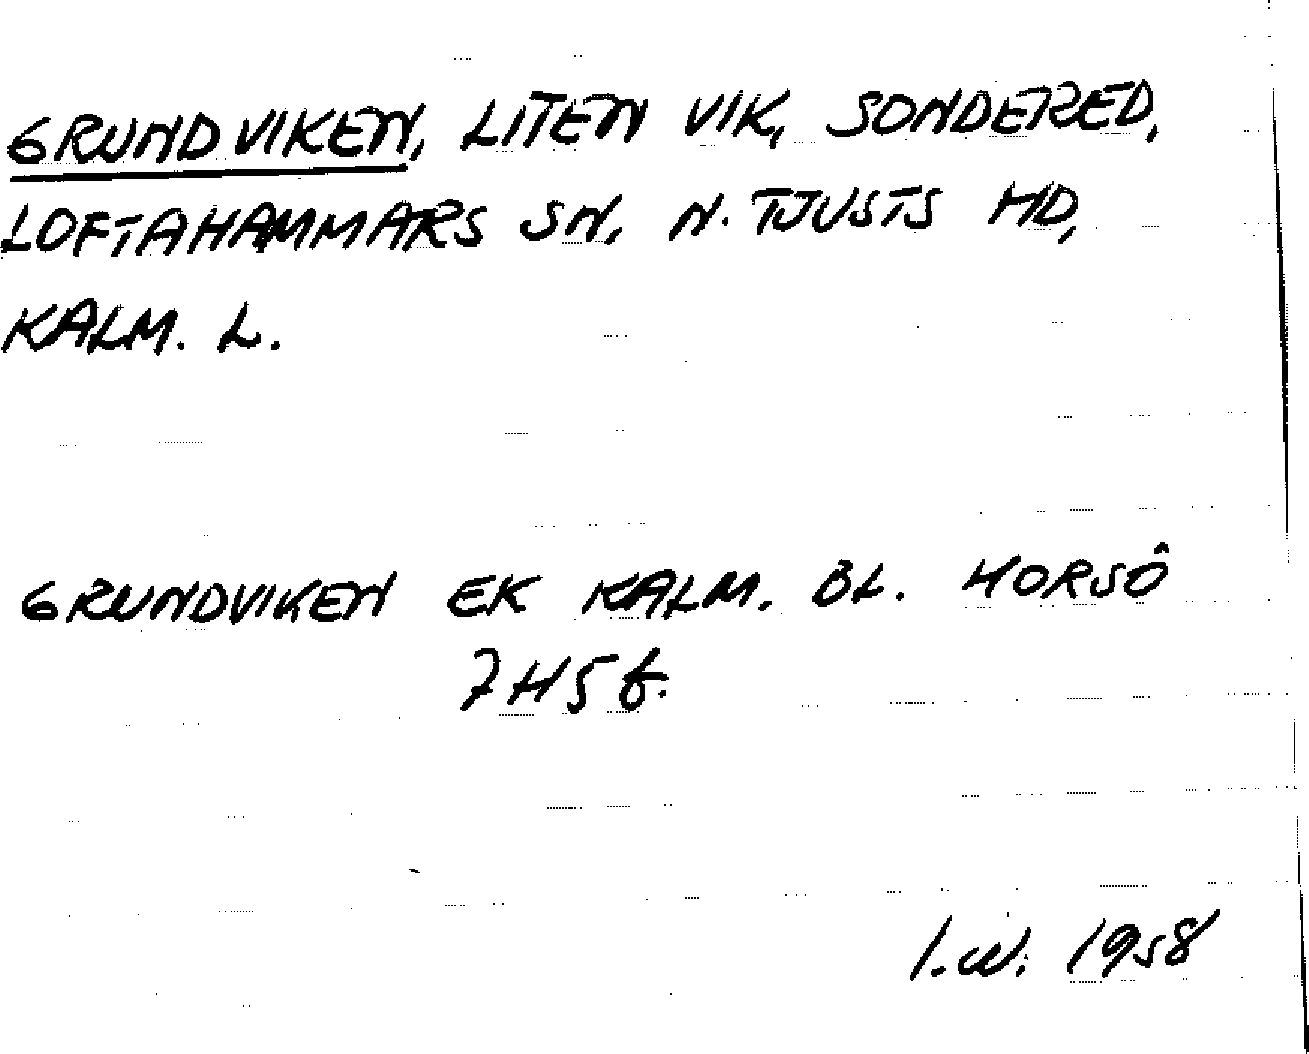 GRUNDVIKEN, LITEN VIK, SONDERED,
LOFTAHAMMARS SN, N. TJUSTS HD,
KALM. L.
GRUNDVIKEN EK KALM. BL. HORSÖ
7H5f.
I.W. 1958